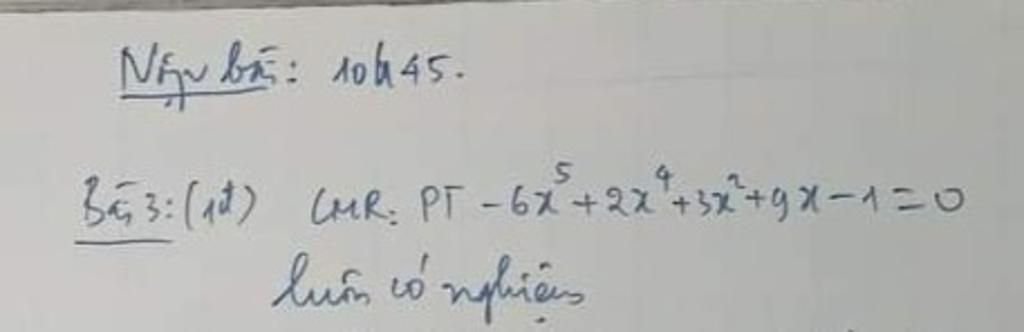 Nộp bài: 10h45.
Bài 3: (1đ) CMR: PT -6x⁵+2x⁴+3x²+9x-1=0
luôn có nghiệm